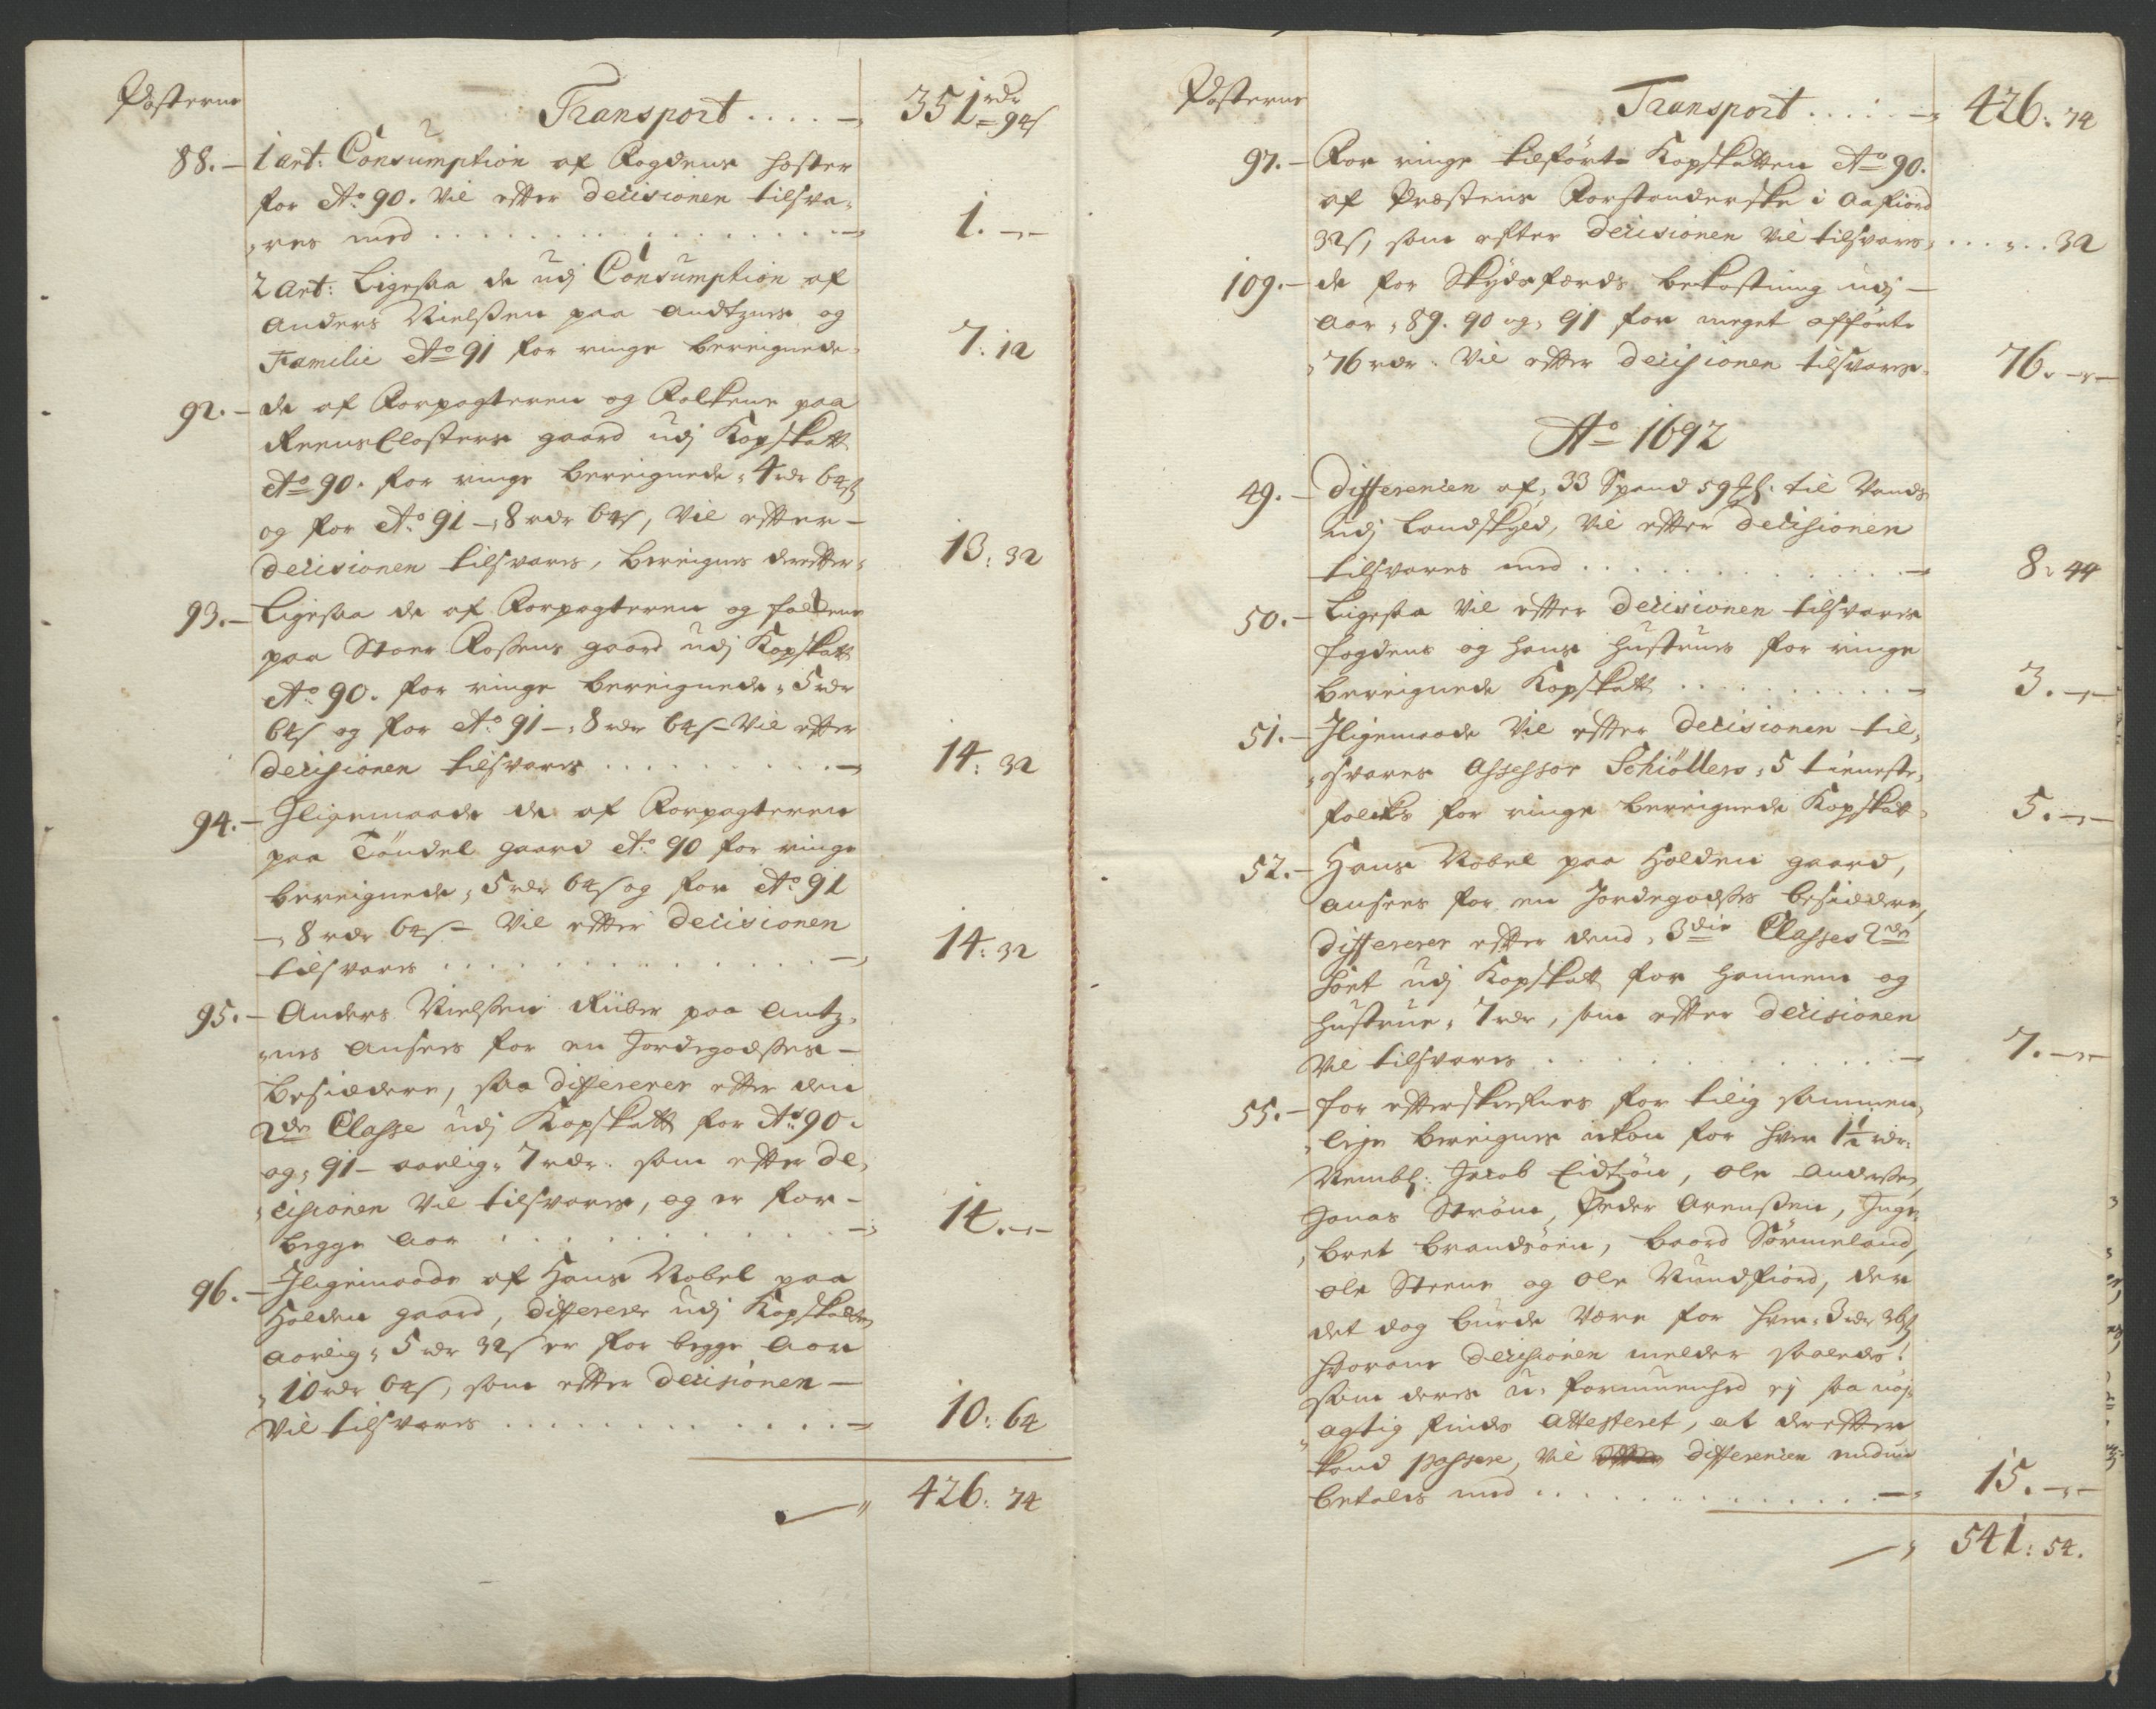 Posterne
Transport . . . . — 351 rdr 94 s
88. — 1 art: Consumption af Fogdens Hoster
for Ao. 90. vil efter Decisionen tilsva-
res med . . . . . . — 1. —
2 art: Ligesaa de udj Consumption af
Anders Nielssen paa Andtznes og
Familie Ao 91 for ringe bereignede 7: 12
92. — de af Forpagteren og Folkene paa
Reens Closters gaard udj Kopskatt
Ao 90. for ringe bereignede 4 rdr 64 s
og for Ao. 91 — 8 rdr 64 s, vil efter —
Decisionen tilsvares, bereignes derefter 13: 32
93. — Ligesaa de af Forpagteren og Folkene
paa Stoer Fossens gaard udj Kopskatt
Ao. 90. for ringe bereignede 5 rdr
64 s og for Ao. 91 — 8 rdr 64 s — vil efter
Decisionen tilsvares . . . . . — 14: 32
94. — Iligemaade de af Forpagteren
paa Töndel gaard Ao. 90 for ringe
bereignede, 5 rdr 64 s og for Ao. 91
— 8 rdr 64 s — vil efter Decisionen
tilsvares . . . . . . . — 14: 32
95. — Anders Nielssen Rüber paa Antz-
nes ansees for en Jordegodses —
besiddere, saa differerer efter den
2de Classe udj Kopskatt for Ao. 90.
og, 91 — aarlig, 7 rdr. som efter De-
cisionen vil tilsvares, og er for —
begge Aar . . . . . . — 14. —
96. — Iligemaade af Hans Nobel paa
Holden gaard, differerer udj Kopskatten
aarlig, 5 rdr 32 s er for begge Aar
10 rdr 64 s, som efter Decisionen —
vil tilsvares . . . . . . — 10: 64
— 426: 74
Posterne
Transport . . . . — 426: 74
97. — For ringe tilfört Kopskatten Ao 90.
af Præstens Forstanderske i Aafiord
32 s, som efter Decisionen vil tilsvares . . . . . 32
109. — de for Skydsfærds bekostning udj —
Aar, 89. 90 og, 91 for meget afförte
76 rdr. vil efter Decisionen tilsvares 76. —
Ao 1692
49. — Differencen af, 33 Spand til Vands
udj Landskyld, vil efter Decisionen
tilsvares med . . . . . . — 8: 44
50. — Ligesaa vil efter Decisionen tilsvares
fogdens og hans Hustrues for ringe
bereignede Kopskatt . . . . . — 3. —
51. — Iligemaade vil efter Decisionen til-
svares Assessor Schiöllers, 5 tieneste-
folcks for ringe bereignede Kopskatt 5. —
52. — Hans Nobel paa Holden gaard,
ansees for en Jordegodses besiddere,
differerer efter dend, 3die Classes 2de
udj Kopskatt for hannem og
hustrue, 7 rdr, som efter Decisionen
vil tilsvares . . . . . . — 7. —
55. — for efterskrefne for tilig sammen-
leje bereignes ickon for hver 1½ rdr.
Nembl: Jacob Eidtzön, Ole Anderssen,
Jonas Ström, Peder Arenssen, Inge-
bret Brandsöen, Baard Sörmeland,
Ole Steene og Ole Nundfiord, der
det dog burde være for hver 3 rdr 36 s
hvorom Decisionen melder saaledes:
som deres u-formuenhed ej saa nöj-
agtig findes attesteret, at derefter
kand passere, vil differencen endnu
betales med . . . . . . — 15. —
— 541: 54.